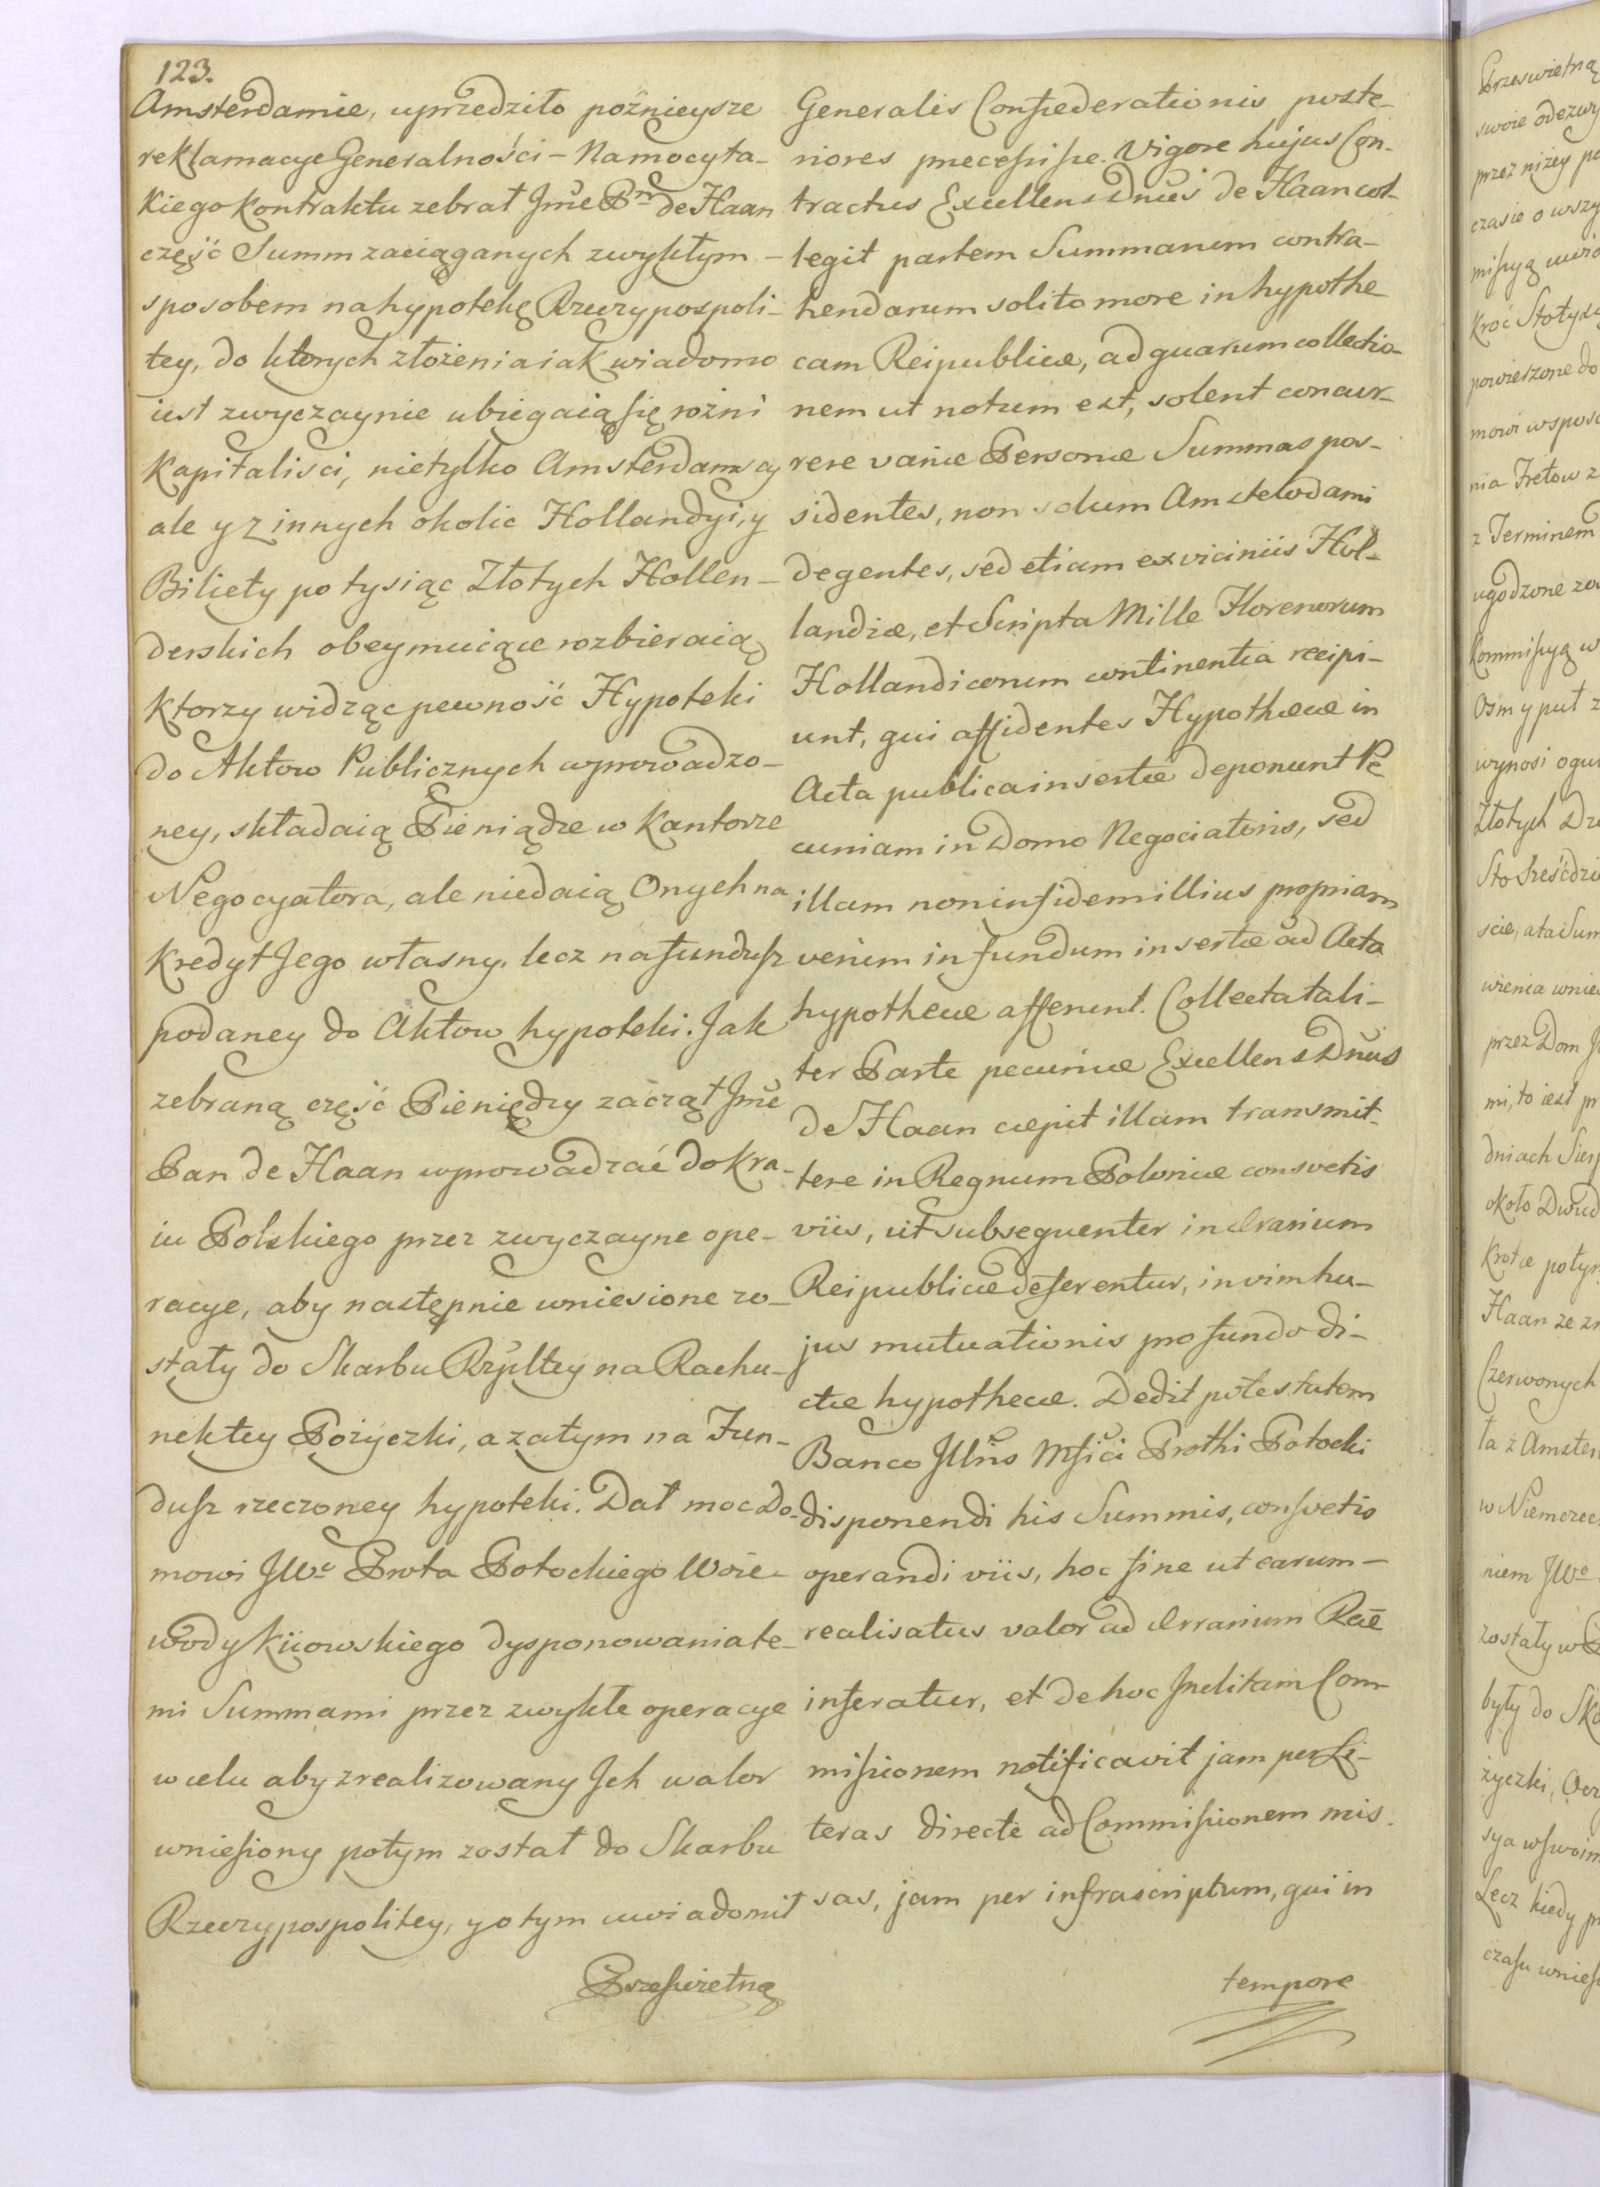 123.
Amsterdamie, uprzedziło poźnieysze
reklamacye Generalności – Na mocy ta-
kiego kontraktu zebrał Jmć Pan de Haan
część Summ zaciąganych zwykłym –
sposobem na hypotekę Rzeczypospoli-
tey, do ktorych złożenia iak wiadomo
iest zwyczaynie ubiegaią się rożni
Kapitalisci, nietylko Amsterdamscy
ale y z innych okolic Hollandyi, y
Biliety po tysiąc Złotych Hollen-
derskich obeymuiące rozbieraią,
Ktorzy widząc pewność Hypoteki
do Aktow Publicznych wprowadzo-
ney, składaią Pieniądze w Kantorze
Negocyatora, ale niedaią Onych na
kredyt Jego własny, lecz na fundusz
podaney do Aktow hypoteki. Jak
zebraną część Pieniędzy zaczął Jmć
Pan de Haan wprowadzać do Kra-
iu Polskiego przez zwyczayne ope-
racye, aby następnie wniesione zo-
stały do Skarbu Rzpltey na Rachu-
nek tey Pożyczki, a zatym na Fun-
dusz rzeczoney hypoteki. Dał moc Do-
mowi JWo Prota Potockiego Woie-
wody Kiiowskiego dysponowania te-
mi Summami przez zwykłe operacye
w celu aby zrealizowany Jch walor
wniesiony potym został do Skarbu
Rzeczypospolitey, y o tym uwiadomił
Prześwietną
Generalis Confœderationis poste-
riores præcessisse. Vigore hujus Con-
tractus Excellens Dnus de Haan col-
legit partem Summarum contra-
hendarum solito more in hypothe-
cam Reipublicæ, ad quarum collectio-
nem ut notum est, solent concur-
rere variæ Personæ Summas pos-
sidentes, non solum Amstelodami
degentes, sed etiam ex viciniis Hol-
landiæ, et Scripta Mille Florenorum
Hollandicorum continentia recipi-
unt, qui affidentes Hypothecæ in
Acta publica insertæ deponunt Pe
cuniam in Domo Negociatoris, sed
illam non in fidem illius propriam
verum in fundum insertæ ad Acta
hypothecæ afferunt. Collecta tali-
ter Parte pecuniæ Excellens Dnus
de Haan cæpit illam transmit-
tere in Regnum Poloniæ consvetis
viis, ut subsequenter in Ærarium
Reipublicæ deferentur, in vim hu-
jus mutuationis pro fundo di-
ctæ hypothecæ. Dedit potestatem
Banco Jllris Mfici Prothi Potocki
disponendi his Summis, consvetis
operandi viis, hoc fine ut earum –
realisatus valor ad Ærrarium Rae
inferatur, et de hoc Jnclitam Com-
missionem notificavit jam per Li-
teras directe ad Commissionem mis-
sas, jam per infrascriptum, qui in
tempore